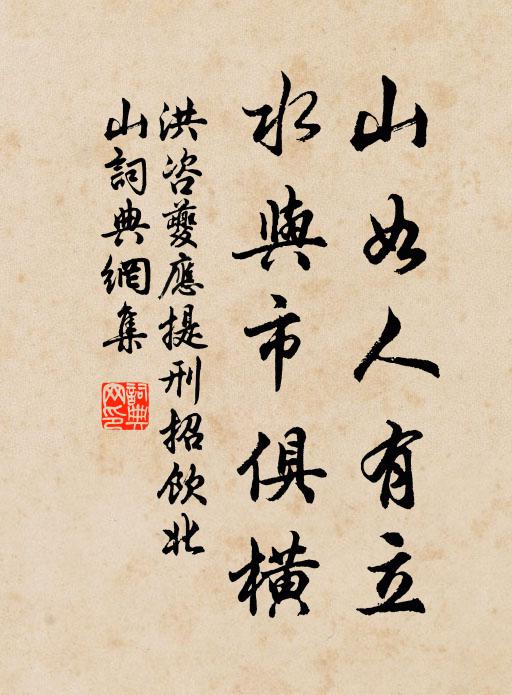 山如人有立
水與市俱橫
洪咨夔應提刑招飲北
山詞典網集
詞典
网印